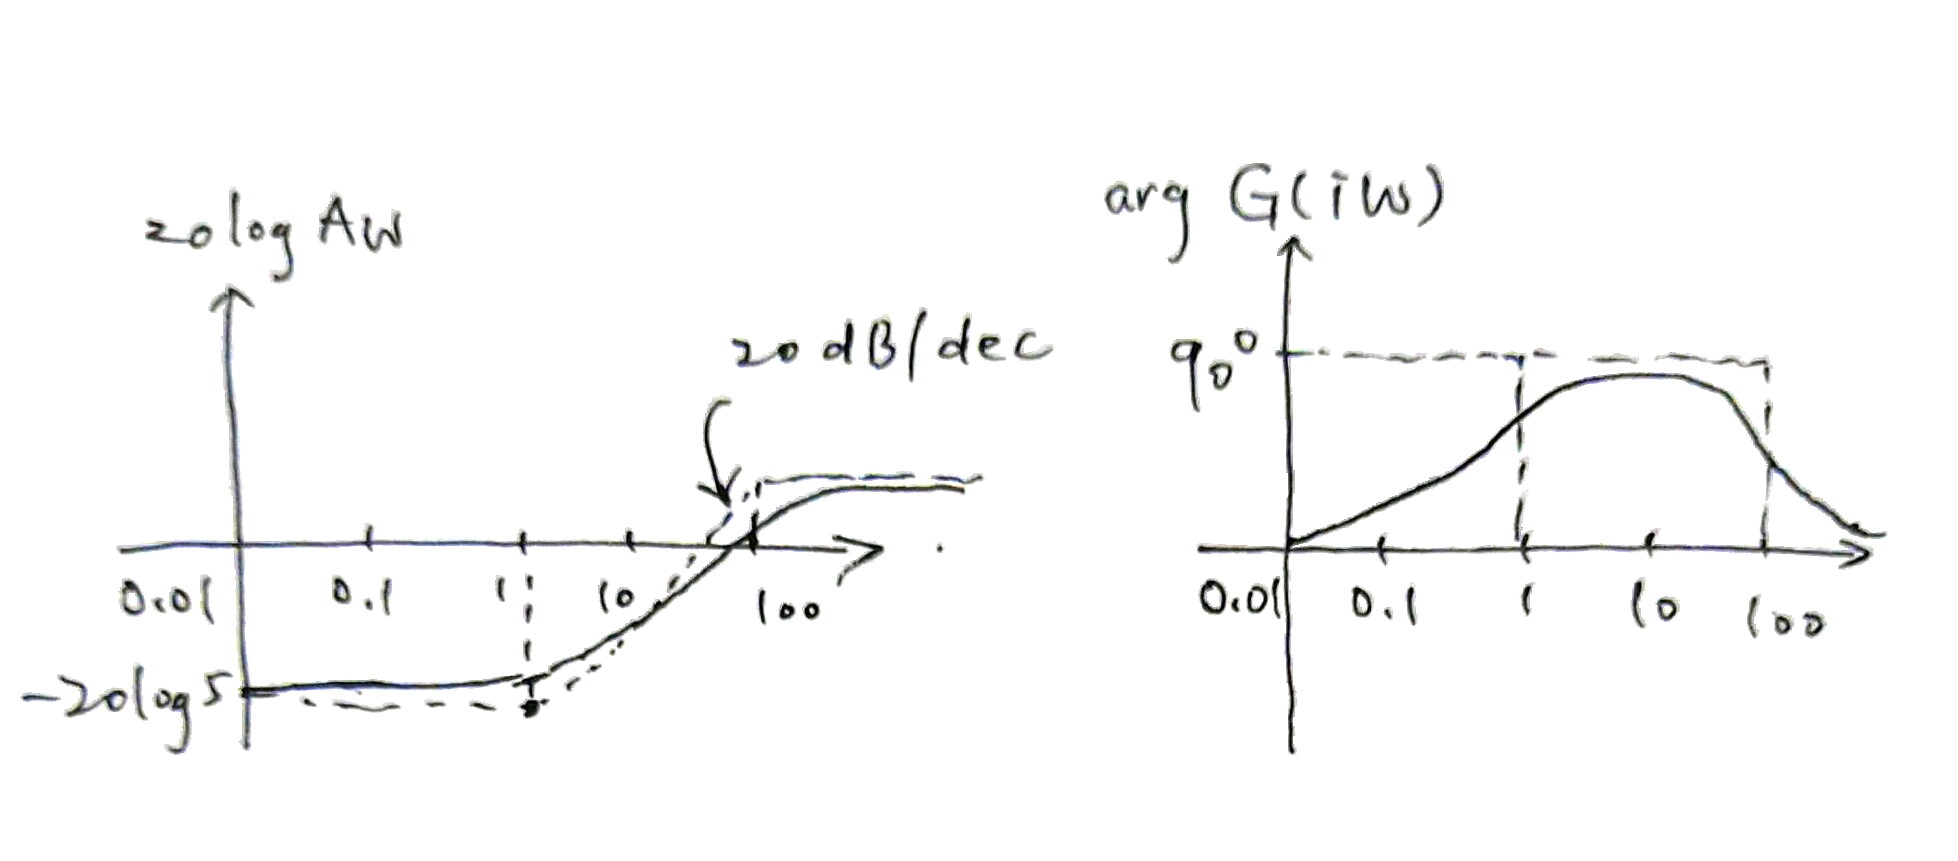 20log Aw
20dB/dec
0.01 0.1 1 10 100
-20log5
arg G(iw)
90°
0.01 0.1 1 10 100